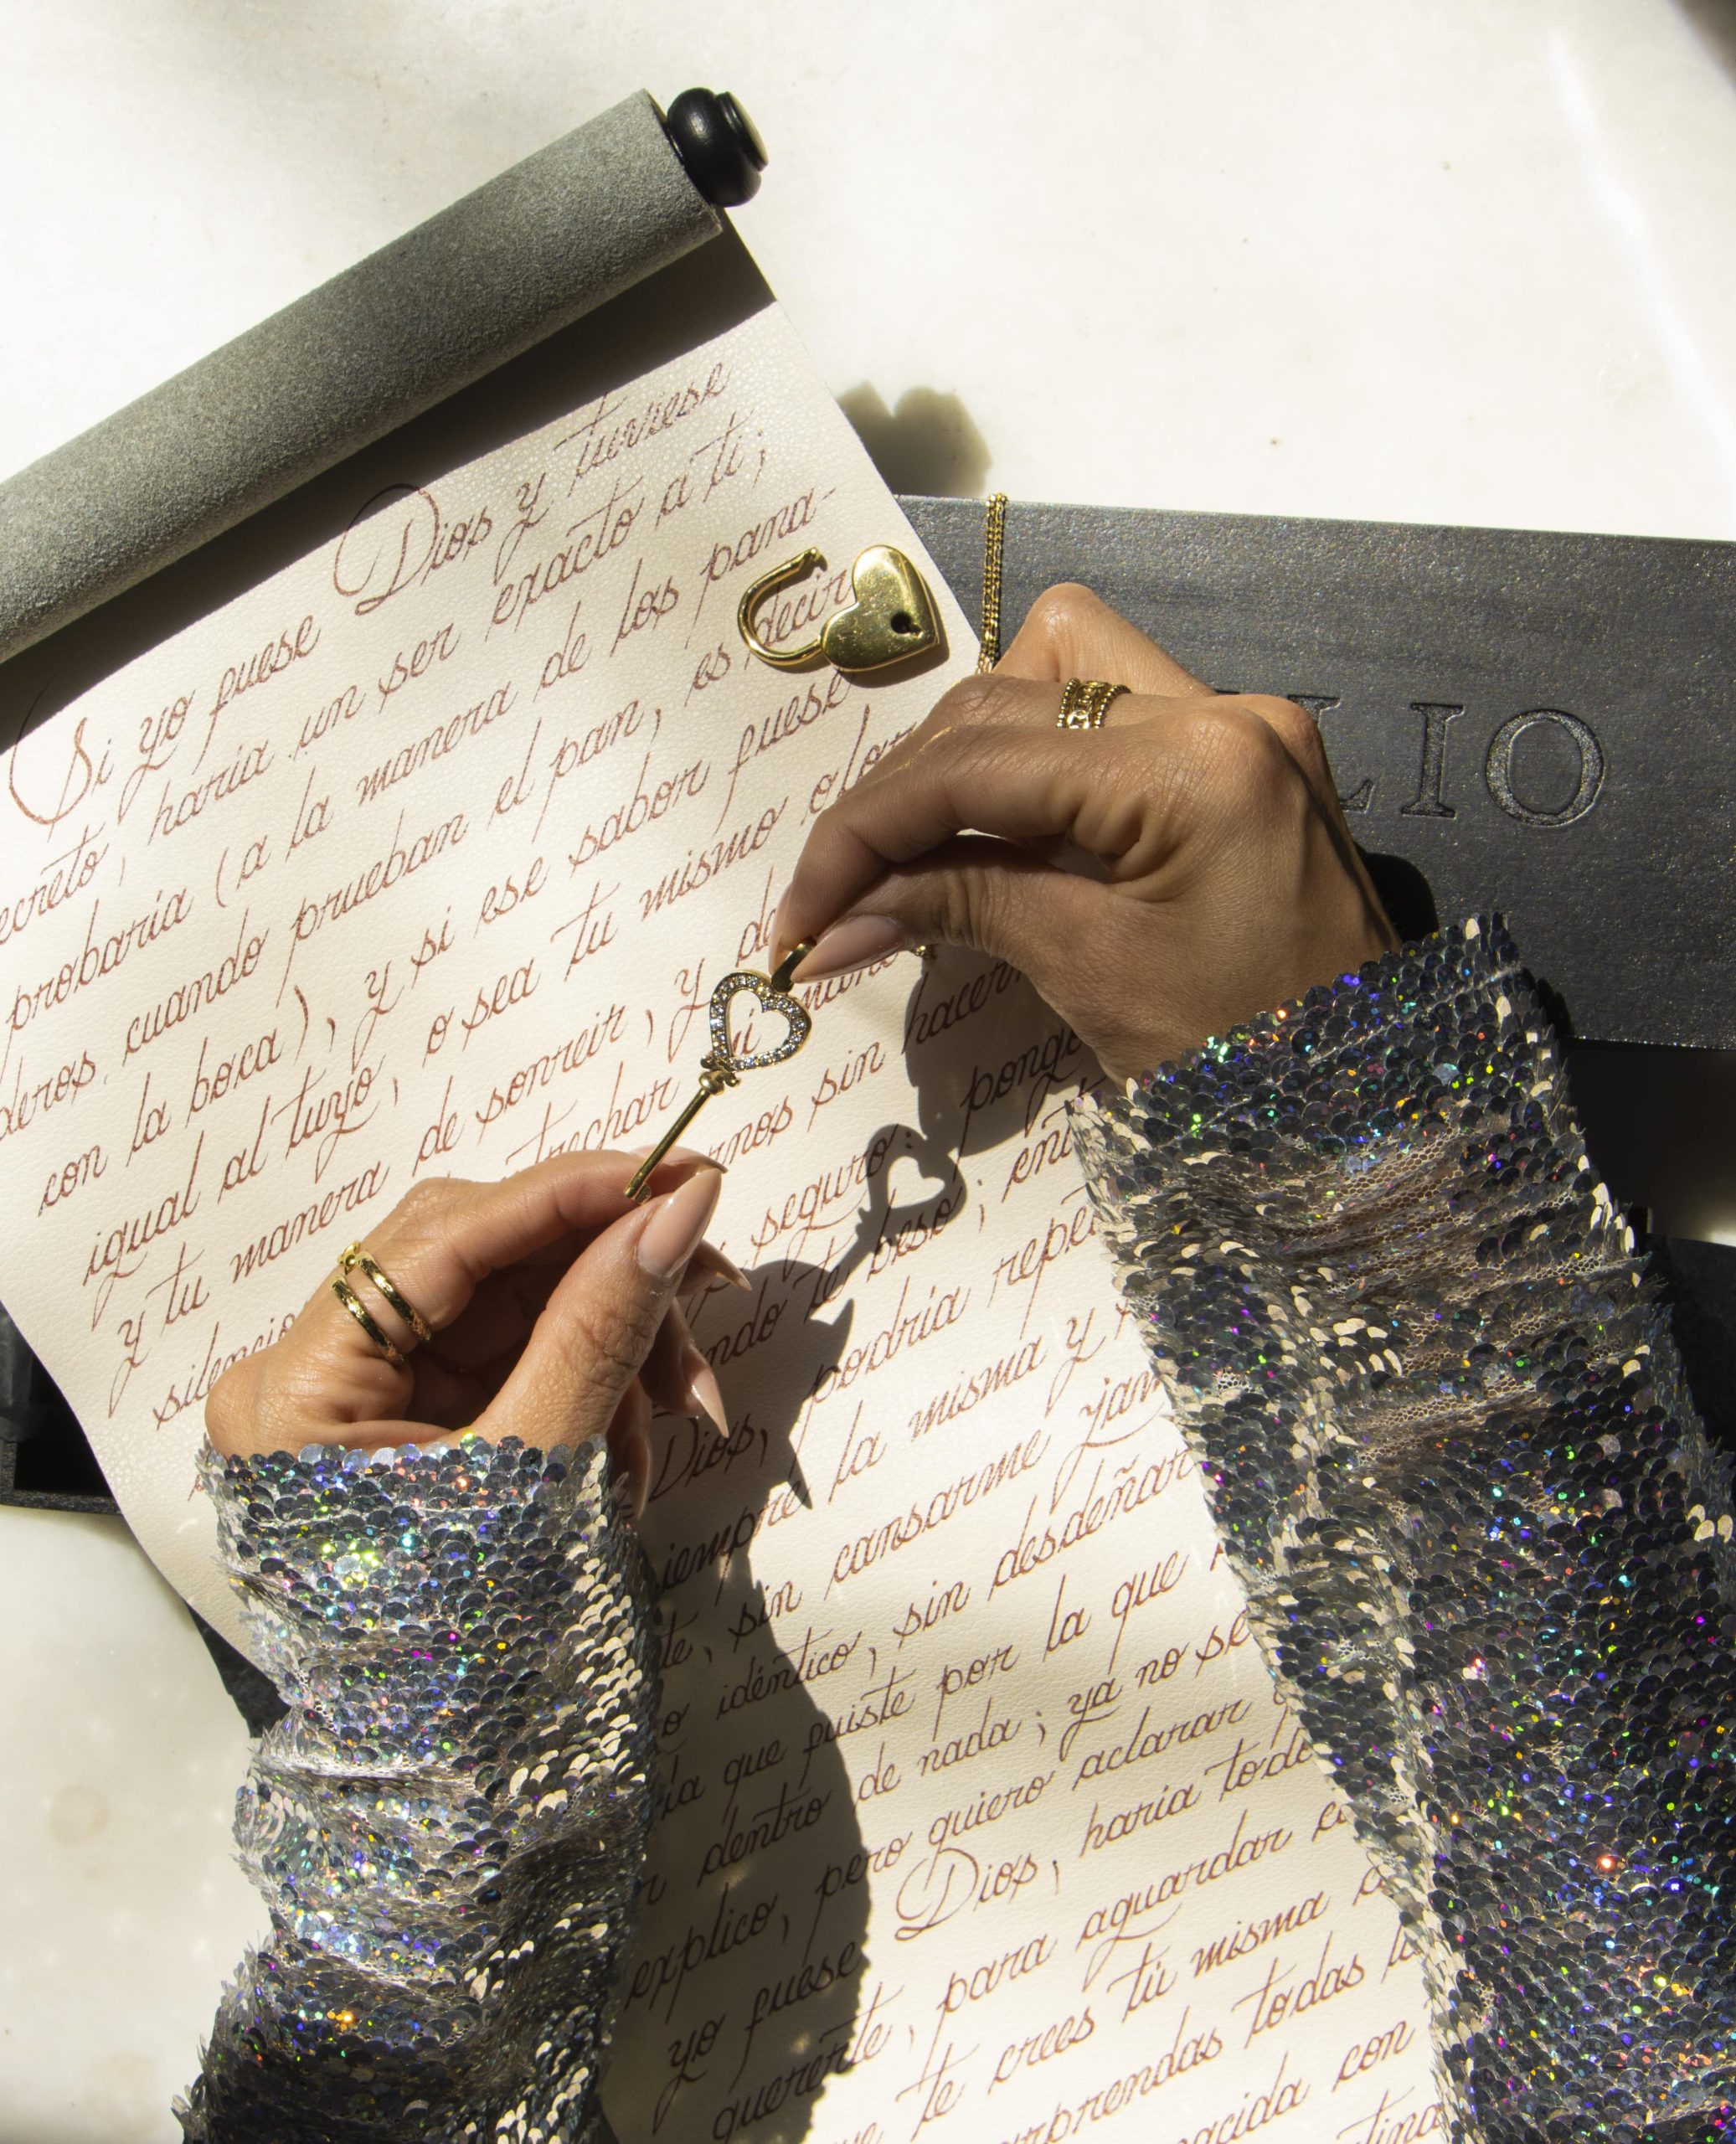 Si yo fuese Dios y tuviese
ecreto, haría un ser exacto a ti;
probaría (a la manera de los pana-
deros cuando prueban el pan, es decir
con la boca), y si ese sabor fuese
igual al tuyo, o sea tu mismo olor
y tu manera de sonreir, y de
silencio trechar mi mano
rnos sin hacern
seguro: pongo
ndo te beso; ent
Dios, podría repe
iempre la misma y
te, sin cansarme jam
o idéntico, sin desdeñar
ía que fuiste por la que
r dentro de nada; ya no se
explico, pero quiero aclarar
yo fuese Dios, haría todo
quererte, para aguardar co
ue te crees tú misma c
orprendas todas la
nacida con
tina
LIO